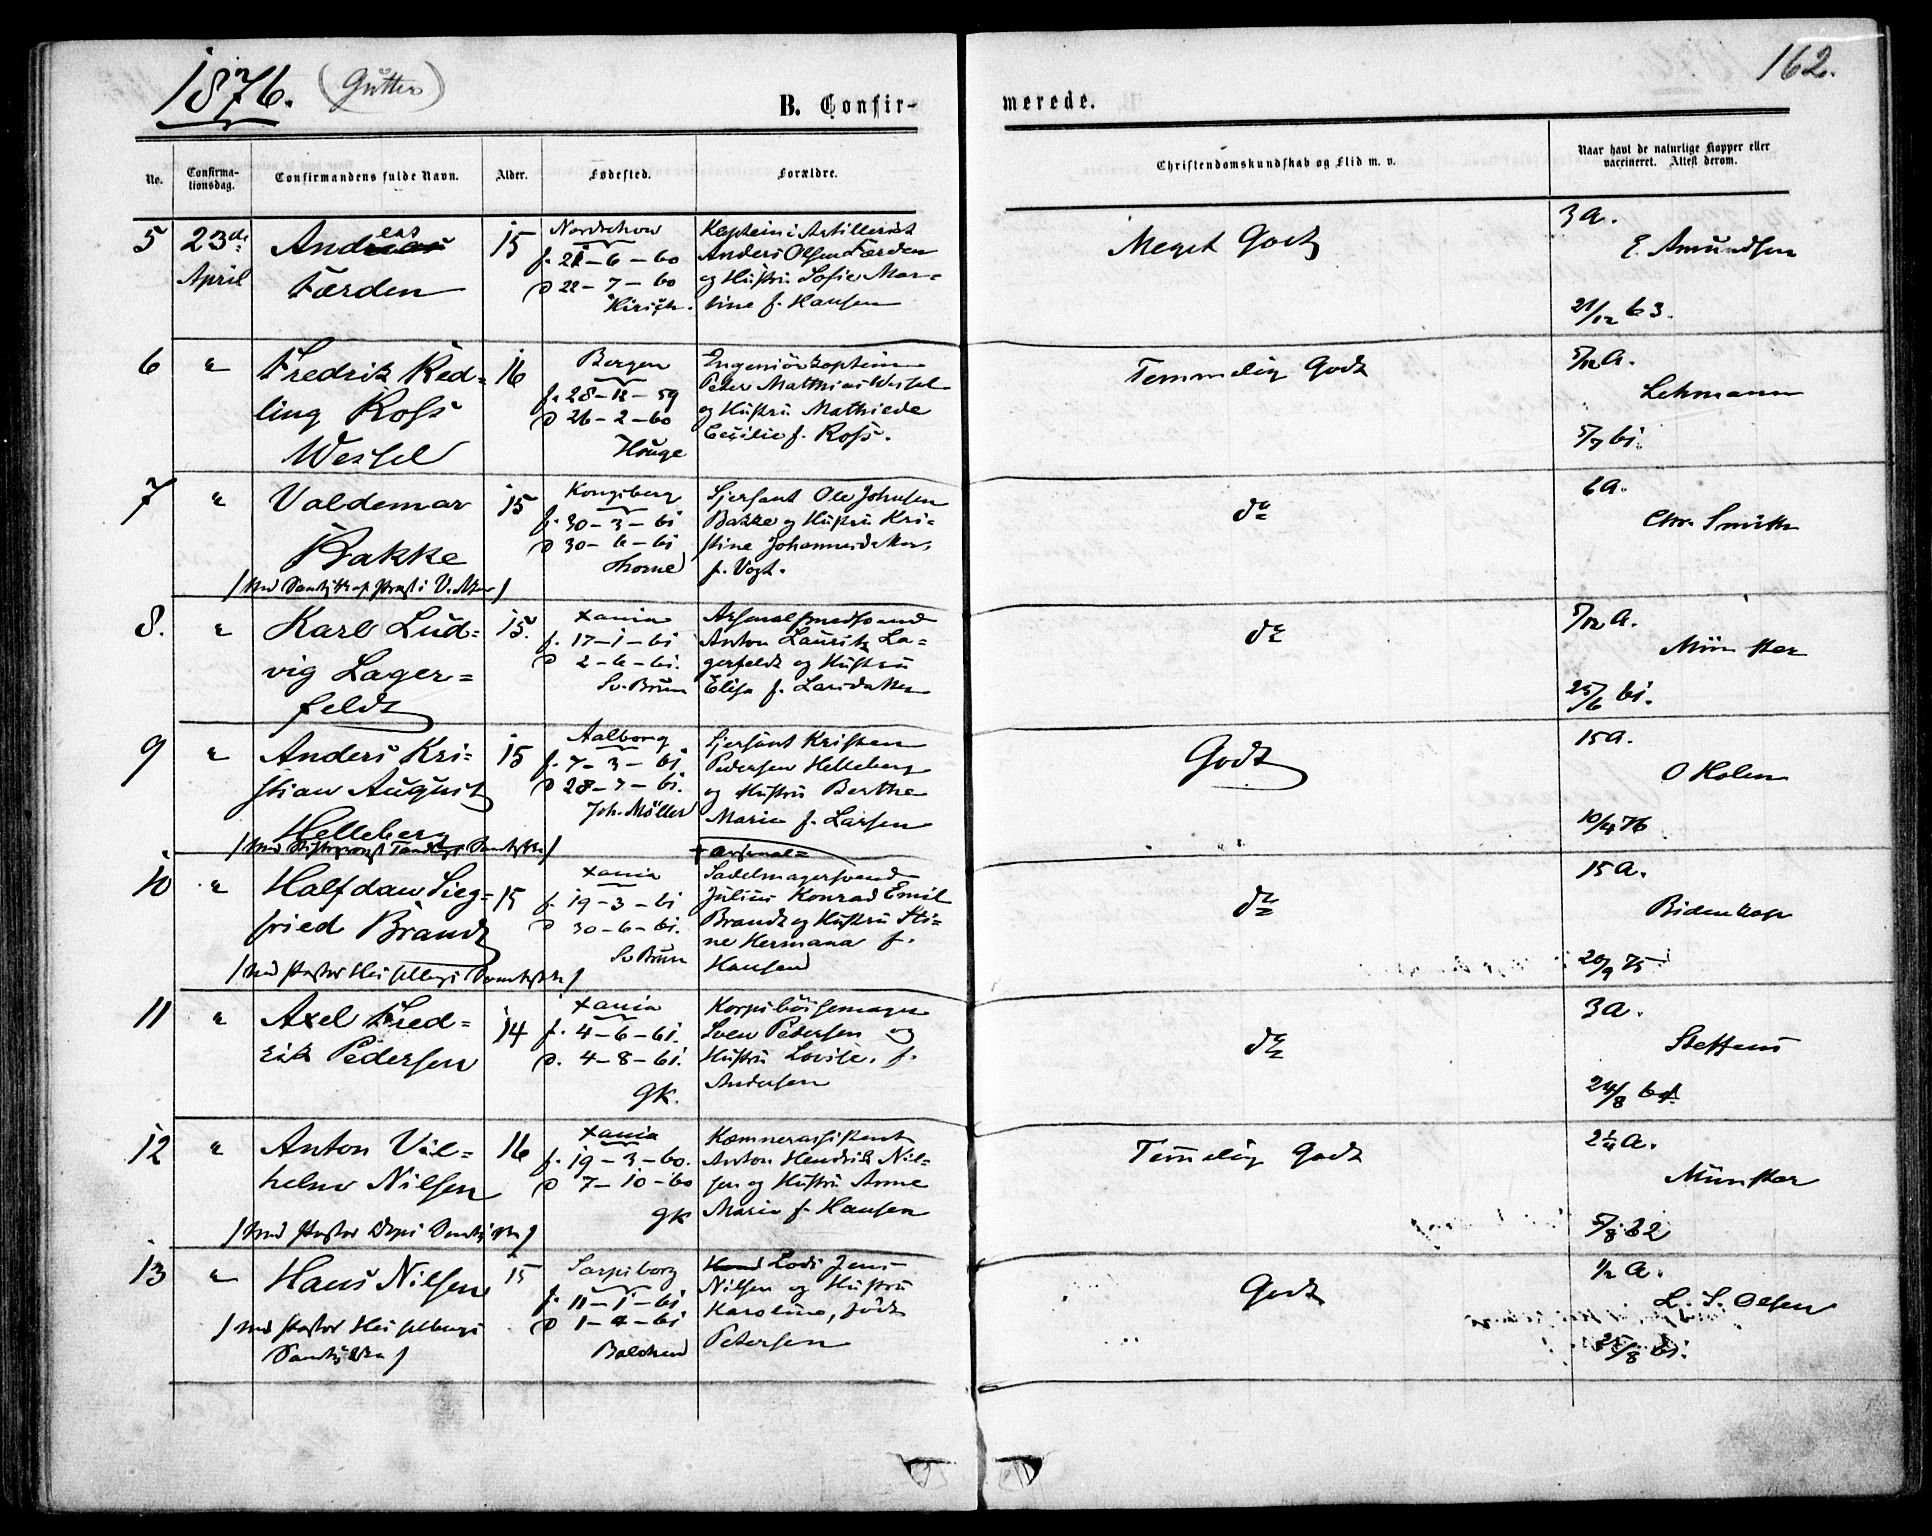 1876. (Gutter)
162.
B. Confir-
merede.
No.
Confirma-
tionsdag.
Confirmandens fulde Navn.
Alder.
Fødested.
Forældre.
Christendomskundskab og Flid m. v.
Naar havt de naturlige Kopper eller
vaccineret. Attest derom.
5
23de
April
Andreas
Færden
15
f. 21-6-60
D 22-7-60
Kaptein i Artilleriet
Anders Olsen Færden
og Hustru Sofie Mar-
tine f. Hansen
Meget Godt
3a.
E. Amundsen
21/12 63.
6
"
Fredrik Red-
ling Ross
Wessel
16
Bergen
f. 28-12-59
D 26-2-60
Houge
Ingeniørkaptein
Peter Matthias Wessel
og Hustru Mathiede
Cecilie f. Ross.
Temmelig Godt
5/12 a.
Lehmann
5/7 61.
7
"
Valdemar
Bakke
15
Kongsberg
f. 30-3-61
D 30-6-61
Thorne
Sjersant Ole Johnsen
Bakke og Hustru Kri-
stine Johannesdatter,
f. Vogt.
do
6a.
Chr. Smith
8.
"
Karl Lud-
vig Lager-
feldt
15.
Xania
f. 17-1-61
D 2-6-61.
Sv. Brun
Arsenalsmedsvend
Anton Lauritz La-
gerfeldt og Hustru
Elisa f. Larsdatter
do
5/12 a.
Münster
25/6 61.
9
"
Anders Kri-
stian August
Helleberg
15
Aalborg
f. 7-3-61
D 28-7-61.
Joh. Möller
Sjersant Kristen
Pedersen Helleberg
og Hustru Berthe
Marie f. Larsen
Godt
15a.
O Holm
10/4 76
10
"
Halfdan Sieg-
fried Brandt
/ Med Pastor Hesselbergs Samtykke /
15
Xania
f. 19-3-61
D 30-6-61.
Sv Brun
+ Arsenal=
Sadelmagersvend
Julius Konrad Emil
Brandt og Hustru Sti-
ne Hermana f.
Hansen
do
15a.
Bidenkap
20/9 75
11
"
Axel Fred-
rik Pedersen
14
Xania
f. 4-6-61.
D. 4-8-61.
GK.
Korpsbøssemager
Sven Pedersen og
Hustru Lovise, f.
Andersen
do
3a.
Steffens
24/8
12
"
Anton Vil-
helm Nilsen
16
Xania
f. 19-3-60.
D 7-10-60
GK
Kæmnerassistent
Anton Hendrik Nil-
sen og Hustru Anne
Marie f. Hansen
Temmelig Godt
2 1/4 a.
Münster
5/8 62
13
"
Hans Nilsen
/ Med Pastor Hesselbergs
Samtykke /
15
Sarpsborg
f. 11-1-61
D 1-4-61
Balchen
Lods Jens
Nilsen og Hustru
Karoline, født
Petersen
Godt
1/2 a.
L. S. Olsen
25/8 61.